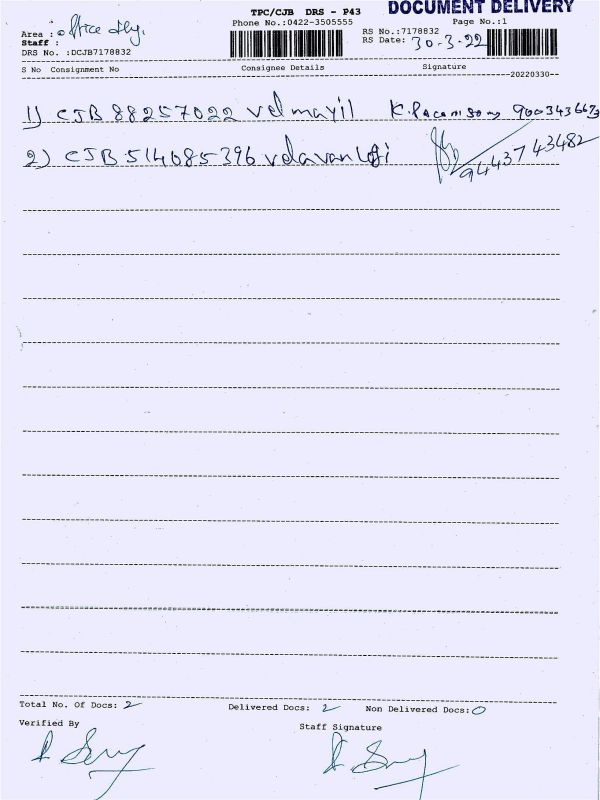 DOCUMENT DELIVERY
TPC/CJB DRS - P43
Phone No.:0422-3505555
Page No.:1
Area : office dly.
Staff :
DRS No. :DCJB7178832
RS No.:7178832
RS Date: 30-3-22
S No Consignment No Consignee Details Signature
--20220330--
1) CJB 88257022 velmayil 900343667
2) CJB 514085396 velavan 9443743482
Total No. Of Docs: 2 Delivered Docs: 2 Non Delivered Docs: 0
Verified By Staff Signature